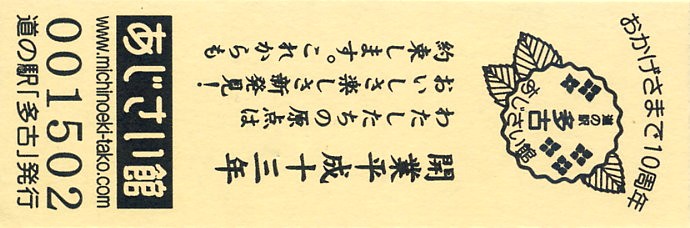 おかげさまで10周年
道の駅
多古
あじさい館
開業平成十三年
わたしたちの原点は
おいしさ楽しさ新発見!
約束します。これからも
あじさい館
www.michinoeki-tako.com
001502
道の駅「多古」発行